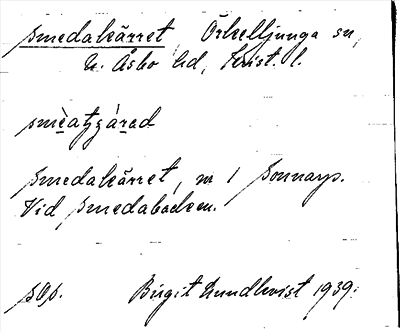 Smedakärret Örkelljunga sn,
N. Åsbo hd, Krist. l.
smèatʒárad
Smedakärret, nr 1 Sonnarp.
Vid Smedabacken.
sOp. Birgit Lundkvist 1939.